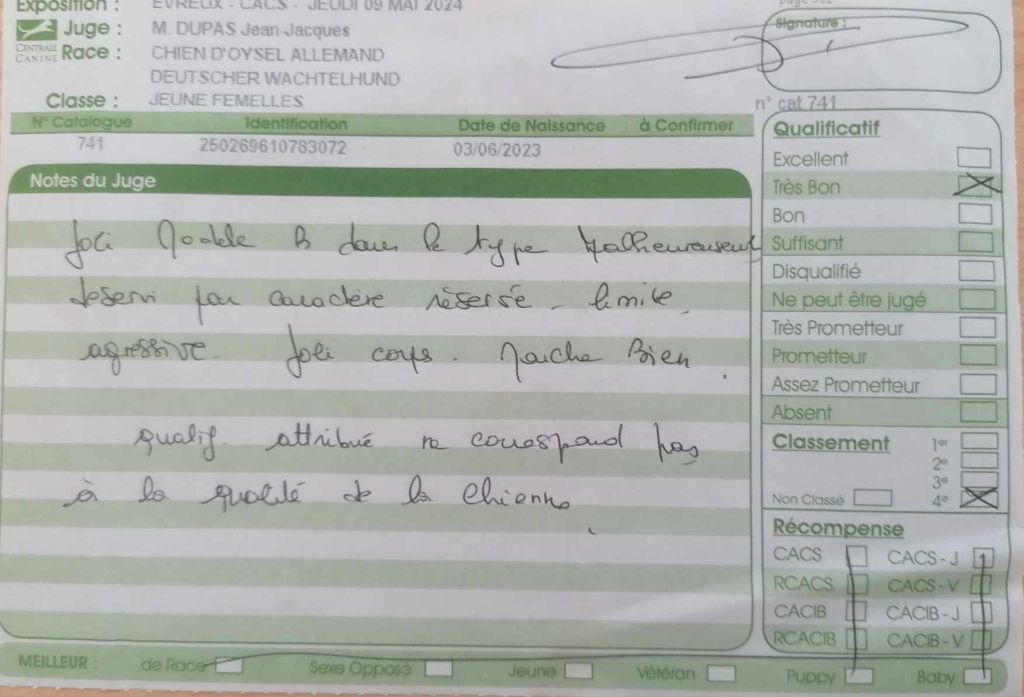 Exposition : EVREUX - CACS - JEUDI 09 MAI 2024
Juge : M. DUPAS Jean-Jacques
CENTRALE CANINE Race : CHIEN D'OYSEL ALLEMAND
DEUTSCHER WACHTELHUND
Classe : JEUNE FEMELLES
Signature :
n° cat 741
N° Catalogue Identification Date de Naissance à Confirmer
741 250269610783072 03/06/2023
Notes du Juge
Joli Modèle B dans le type Malheureusement
deservi par caractère réservé - limite
agressive. Joli corps. Marche Bien.
qualif. attribué ne correspond pas
à la qualité de la Chienne.
Qualificatif
Excellent
Très Bon
Bon
Suffisant
Disqualifié
Ne peut être jugé
Très Prometteur
Prometteur
Assez Prometteur
Absent
Classement 1er
2e
3e
Non Classé 4e
Récompense
CACS CACS-J
RCACS CACS-V
CACIB CACIB-J
RCACIB CACIB-V
MEILLEUR : de Race Sexe Opposé Jeune Vétéran Puppy Baby